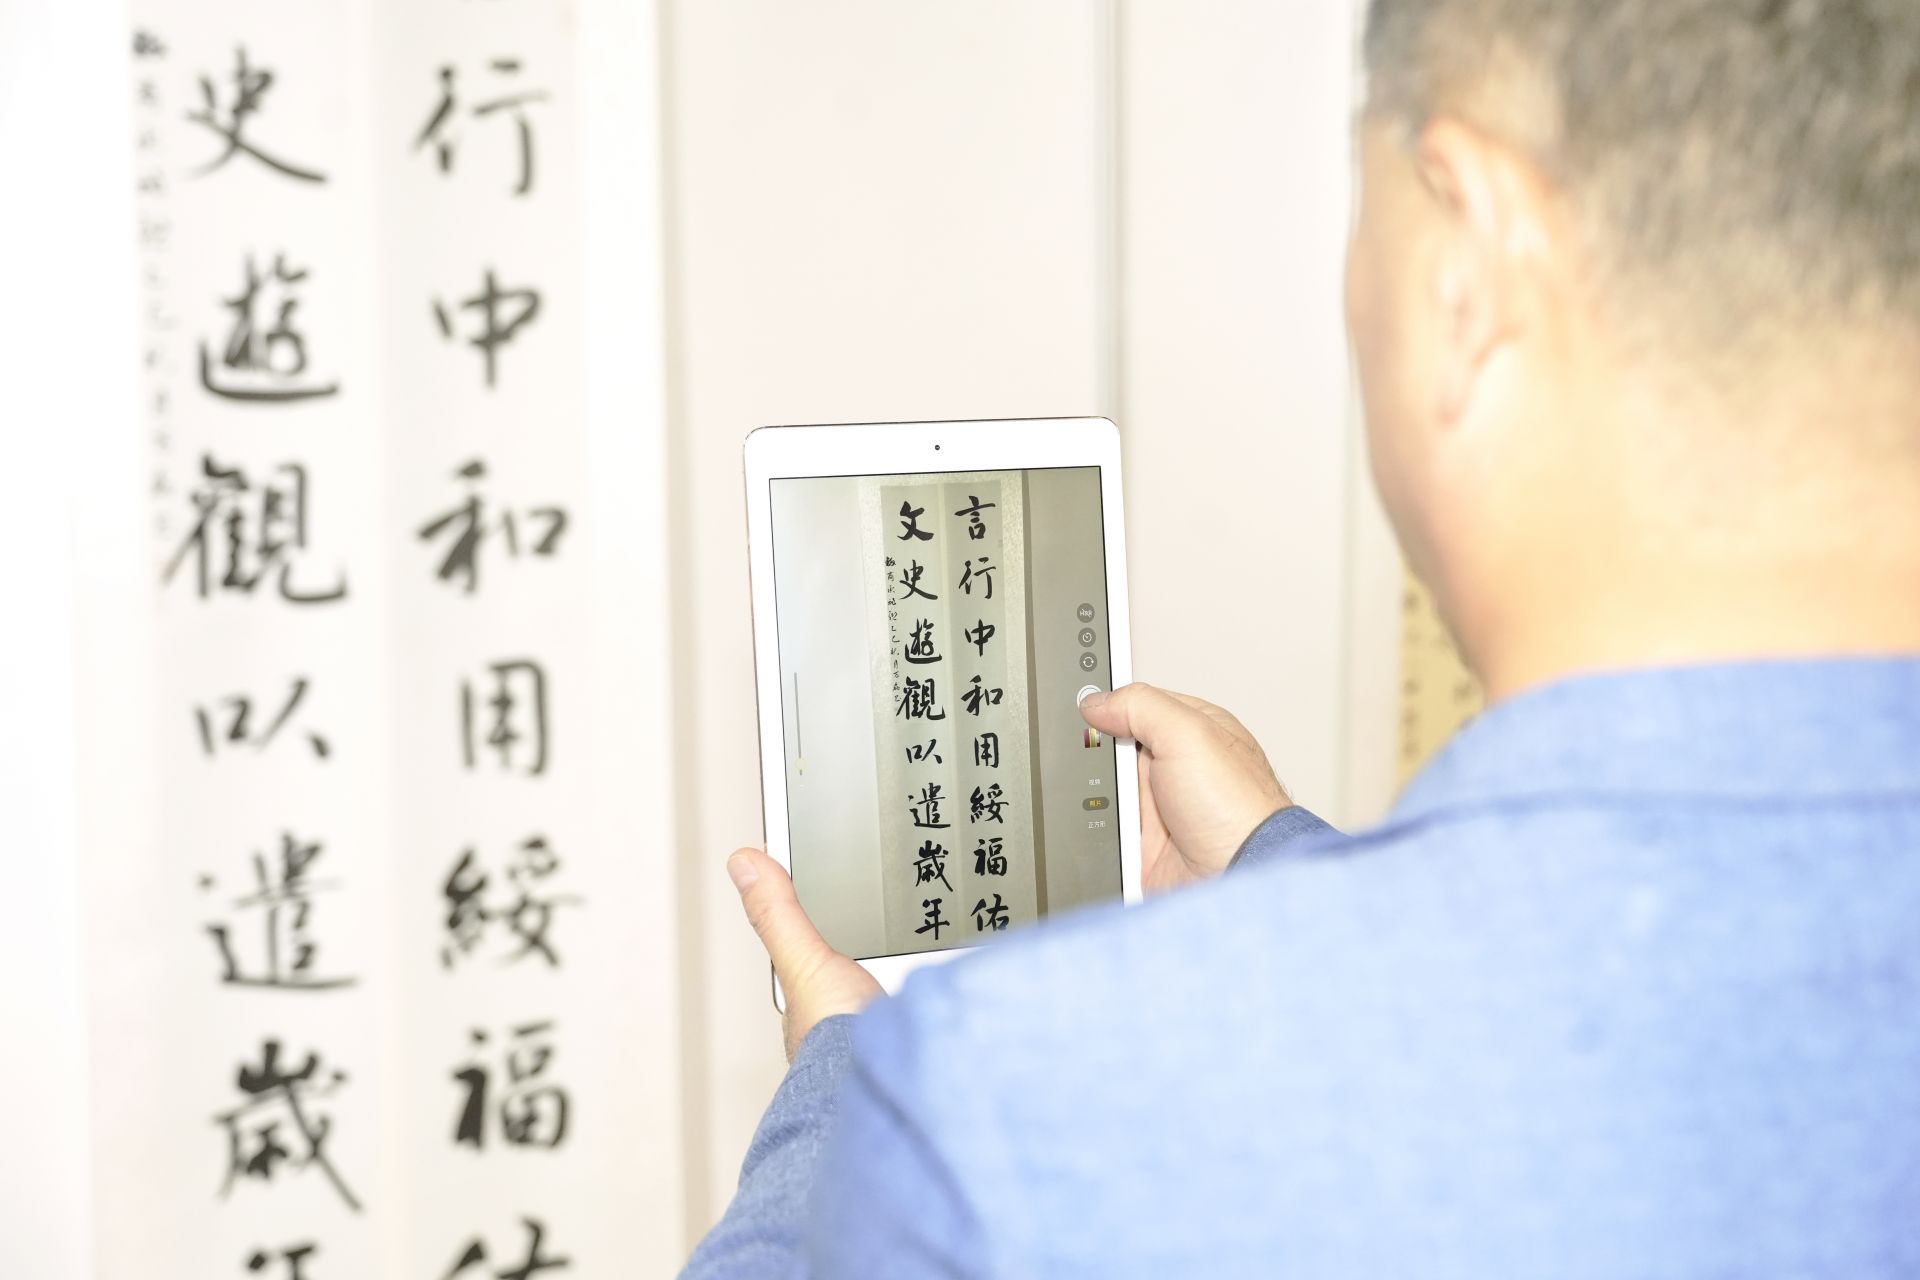 行中和用綏福佑
史遊觀以遣歲年
言行中和用綏福佑
文史遊觀以遣歲年
视频
照片
正方形